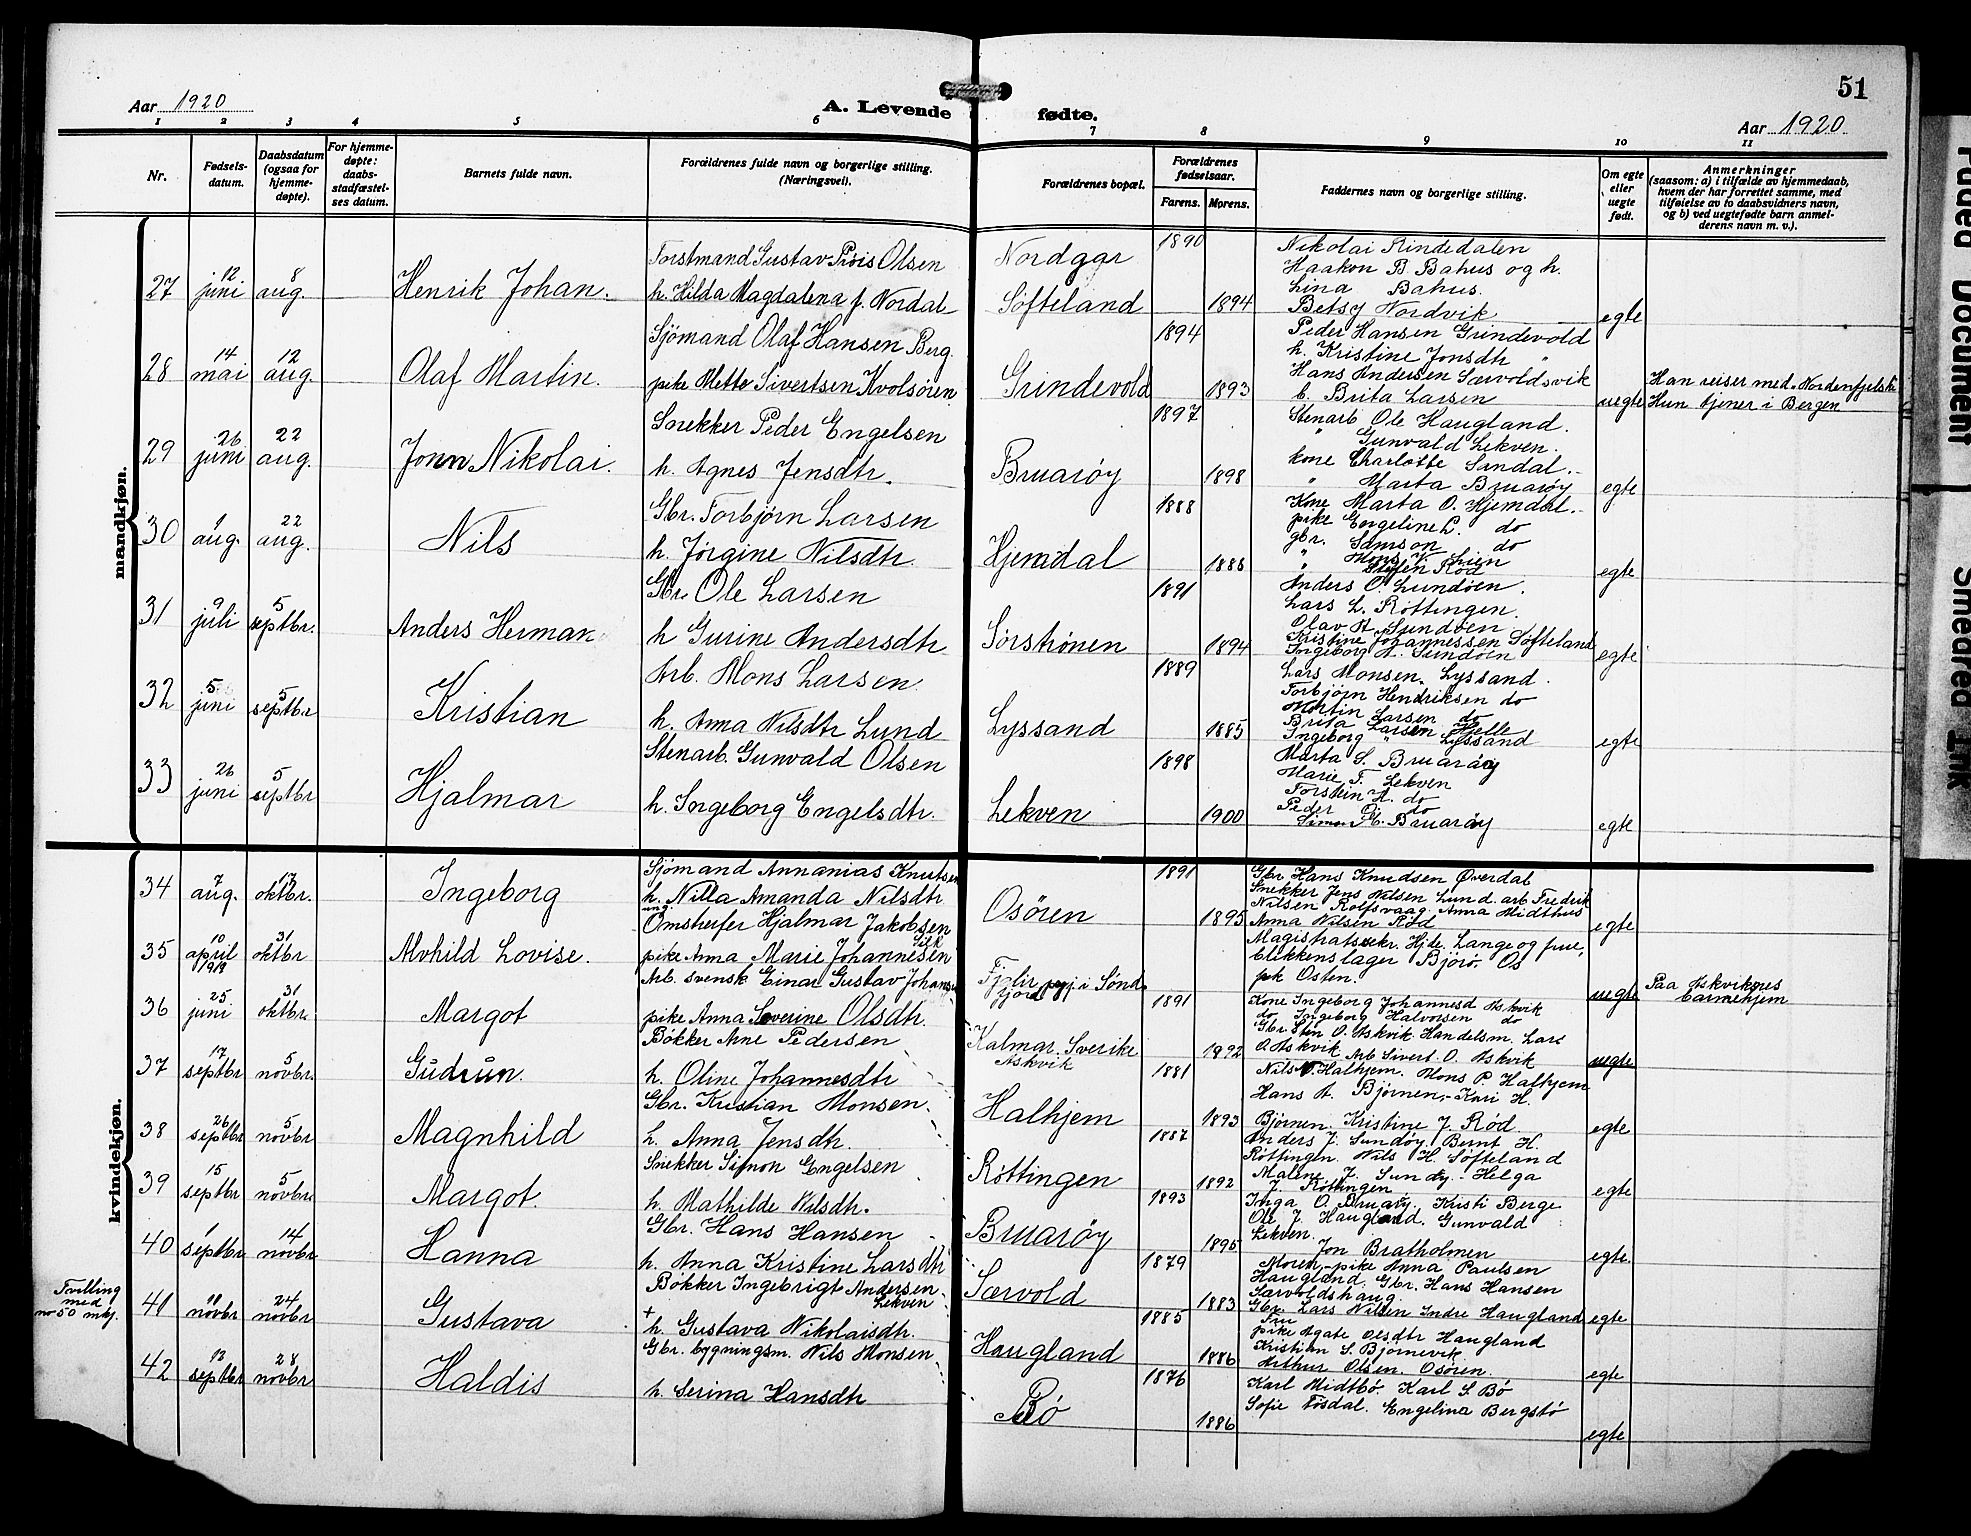 51
Aar 1920
A. Levende fødte.
Aar 1920
1 2 3 4 5 6 7 8 9 10 11
Nr.
Fødsels-
datum.
Daabsdatum
(ogsaa for
hjemme-
døpte).
For hjemme-
døpte:
daabs-
stadfæstel-
ses datum.
Barnets fulde navn.
Forældrenes fulde navn og borgerlige stilling.
(Næringsvei).
Forældrenes bopæl.
Forældrenes
fødselsaar.
Farens. Morens.
Faddernes navn og borgerlige stilling.
Om egte
eller
uegte
født.
Anmerkninger
(saasom: a) i tilfælde av hjemmedaab,
hvem der har forrettet samme, med
tilføielse av to daabsvidners navn,
og b) ved uegtefødte barn anmel-
derens navn m. v.).
mandkjøn.
27 12 juni 8 aug. Henrik Johan.
Forstmand Gustav Olsen
h. Hilda Magdalena f. Nordal
Nordgar
Søfteland
1890
1894
Nikolai Rindedalen
Haakon B. Bahus og h.
Lina Bahus.
Betsy Nordvik
egte
28 14 mai 12 aug. Olaf Martin.
Sjömand Olaf Hansen Berg
pike Mette Sivertsen Kvolsören
Grindevold
1894
1893
Peder Hansen Grindevold
h. Kristine Jonsdtr "
Hans Andersen Særvoldsvik
b. Brita Larsen
uegte
Han reiser med Nordenfjelske
Hun tjener i Bergen
29 26 juni 22 aug. Jonn Nikolai.
Snekker Peder Engelsen
h. Agnes Jensdtr.
Bruarøy
1897
1898
Stenarb. Ole Haugland.
" Gunvald Lekven.
kone Charlotte Sandal.
" Marta Bruarøy
egte
30 1 aug. 22 aug. Nils
Gbr. Torbjørn Larsen
h. Jørgine Nilsdtr.
Hjemdal
1888
1888
Kone Marta O. Hjemdal.
pike Engeline L. do
gbr. Samson do
" Mons K. Lien
" Steffen Rød
egte
31 9 juli 5 septbr. Anders Herman
Gbr. Ole Larsen
h Gurine Andersdtr
Sørstrønen
1891
1894
Anders O. Sundøen.
Lars L. Røttingen.
Olav A. Sundöen.
Kristine Johannessen Søfteland
Ingeborg A. Sundøen
egte
32 5 juni 5 septbr Kristian
Arb. Mons Larsen
h. Anna Nilsdtr Lund
Lyssand
1889
1885
Lars Monsen. Lyssand.
Torbjørn Hendriksen do
Martin Larsen do
Brita Larsen Hjelle
Ingeborg " Lyssand
egte
33 26 juni 5 septbr Hjalmar
Stenarb. Gunvald Olsen
h. Ingeborg Engelsdtr.
Lekven
1898
1900
Marta S. Bruarøy
Marie F. Lekven
Torstein A. do
Peder O. do
Simon Bruarøy
egte
kvindekjøn.
34 7 aug. 17 oktbr. Ingeborg
Sjømand Annanias Knutsen
h. Nilla Amanda Nilsdtr
Osören
1891
1895
Gbr Hans Knudsen Øverdal
Snekker Jens Nilsen Lund. arb Fredrik
Nilsen Rolfsvaag. Anna Midthus
Anna Nilsen Rød
egte
35 10 april 1919 31 oktbr Alvhild Lovise.
ung. Omstreifer Hjalmar Jakobsen
pike Anna Marie Johannesen
Magistratssekr. Hjde. Lange og frue,
blikkenslager Björö. Os
pk Osten.
uegte
Paa Askviknes
barnehjem
36 25 juni 31 oktbr. Margot
Arb. svensk Einar Gustav Johans
pike Anna Severine Olsdtr.
Kalmar. Sverike
Askvik
1891
1892
Kone Ingeborg Johannesd Askvik
do Ingeborg Halvorsen do
Gbr Sten O. Askvik. Handelsm. Lars
O. Askvik. Arb Sivert O. Askvik
uegte
37 17 septbr 5 novbr. Gudrun.
Bøkker Arne Pedersen
h. Oline Johannesdtr
Halhjem
1881
1893
Nils N. Halhjem. Mons P. Halhjem
Hans A. Bjørnen, Kari H.
Bjørnen. Kristine J. Rød
egte
38 26 septbr 5 novbr Magnhild
Gbr. Kristian Monsen.
h. Anna Jensdtr.
Røttingen
1887
1892
Anders J. Sundøy. Bernt H.
Røttingen. Nils H. Søfteland
Malene J. Sundøy. Helga
J. Røttingen
egte
39 15 septbr 5 novbr. Margot.
Snekker Simon Engelsen
h. Mathilde Nilsdtr.
Bruarøy
1893
1895
Inga O. Bruarøy. Kristi Berge
Ole J. Haugland. Gunvald
Lekven.
Jon Bratholmen
egte.
40 1 septbr 14 novbr. Hanna
Gbr. Hans Hansen
h. Anna Kristine Larsdtr
Særvold
1879
1883
Moren, pike Anna Paulsen
Haugland. Gbr. Hans Hansen
Særvoldshaug.
Gbr. Lars Nilsen Indre Haugland
egte
Tvilling
med
nr 50 mkj.
41 11 novbr 24 novbr Gustava
Bøkker Ingebrigt Andersen
Lekven
+
h. Gustava Nikolaisdtr.
Haugland
1885
1886
pike Agate Olsdtr Haugland
Kristian S. Bjørnevik
Arthur Olsen. Osören.
egte
42 12 septbr 28 novbr Haldis
Gbr. bygningsm. Nils Monsen
h. Serina Hansdtr
Bø
1876
1886
Karl Midtbø. Karl S. Bø
Sofie Tøsdal. Engelina Bergstø
egte
Faded Document
Smeared Ink